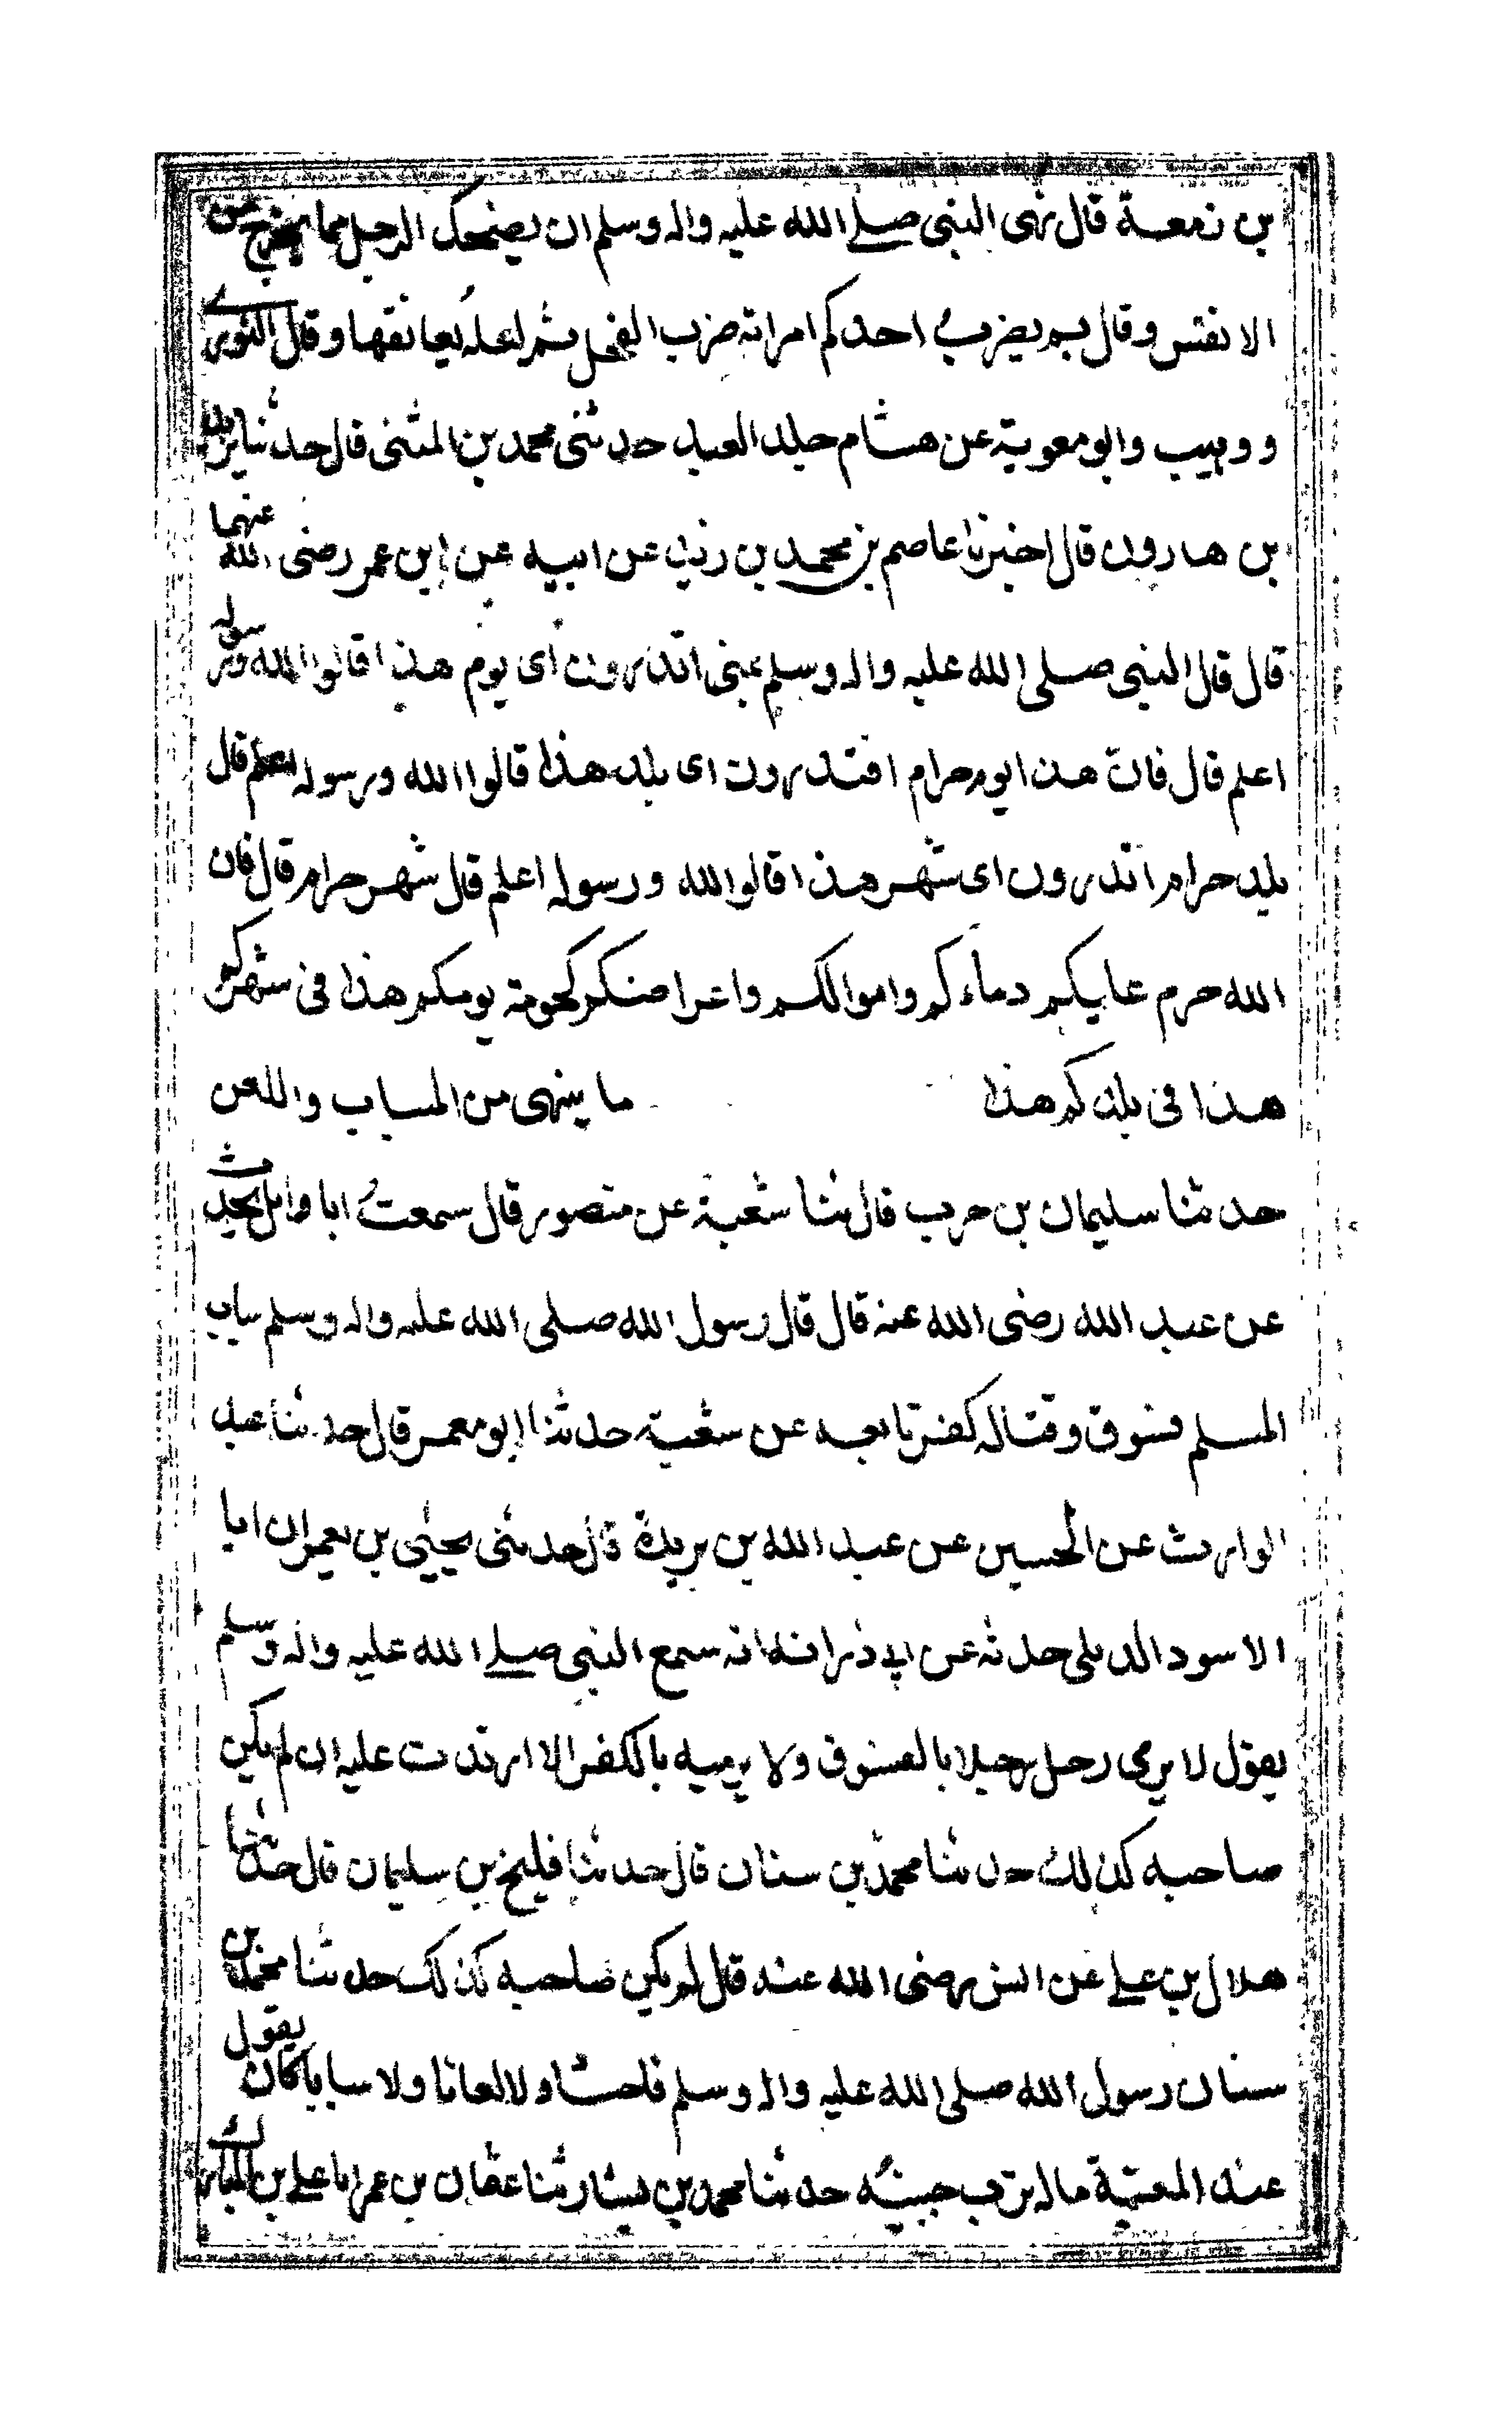 بن زمعة قال نهى النبى صلى الله عليه واله وسلم ان يضحك الرجل مما يخرج من
الانفس وقال بم يضرب احدكم امراته ضرب الفحل ثم لعله يعانقها وقال الثورى
ووهيب وابو معوية عن هشام جلد العبد حدثنى محمد بن المثنى قال حدثنا يزيد
بن هارون قال اخبرنا عاصم بن محمد بن زيد عن ابيه عن ابن عمر رضى الله عنهما
قال قال النبى صلى الله عليه واله وسلم بمنى اتدرون اى يوم هذا قالوا الله ورسوله
اعلم قال فان هذا يوم حرام افتدرون اى بلد هذا قالوا الله ورسوله اعلم قال
بلد حرام اتدرون اى شهر هذا قالوا الله ورسوله اعلم قال شهر حرام قال فان
الله حرم عليكم دماءكم واموالكم واعراضكم كحرمة يومكم هذا فى شهركم
هذا فى بلدكم هذا ما ينهى من السباب واللعن
حدثنا سليمان بن حرب قال ثنا شعبة عن منصور قال سمعت ابا وائل يحدث
عن عبد الله رضى الله عنه قال قال رسول الله صلى الله عليه واله وسلم سباب
المسلم فسوق وقتاله كفر تابعه عن شعبة حدثنا ابو معمر قال حدثنا عبد
الوارث عن الحسين عن عبد الله بن بريدة قال حدثنى يحيى بن يعمر ان ابا
الاسود الديلى حدثه عن ابى ذر انه سمع النبى صلى الله عليه واله وسلم
يقول لا يرمى رجل رجلا بالفسوق ولا يرميه بالكفر الا ارتدت عليه ان لم يكن
صاحبه كذلك حدثنا محمد بن سنان قال حدثنا فليح بن سليمان قال حدثنا
هلال بن على عن انس رضى الله عنه قال لم يكن صاحبه كذلك حدثنا محمد بن
سنان رسول الله صلى الله عليه واله وسلم فاحشا ولا لعانا ولا سبابا كان يقول
عند المعتبة ماله ترب جبينه حدثنا محمد بن بشار ثنا عثمان بن عمر انا على بن المبارك